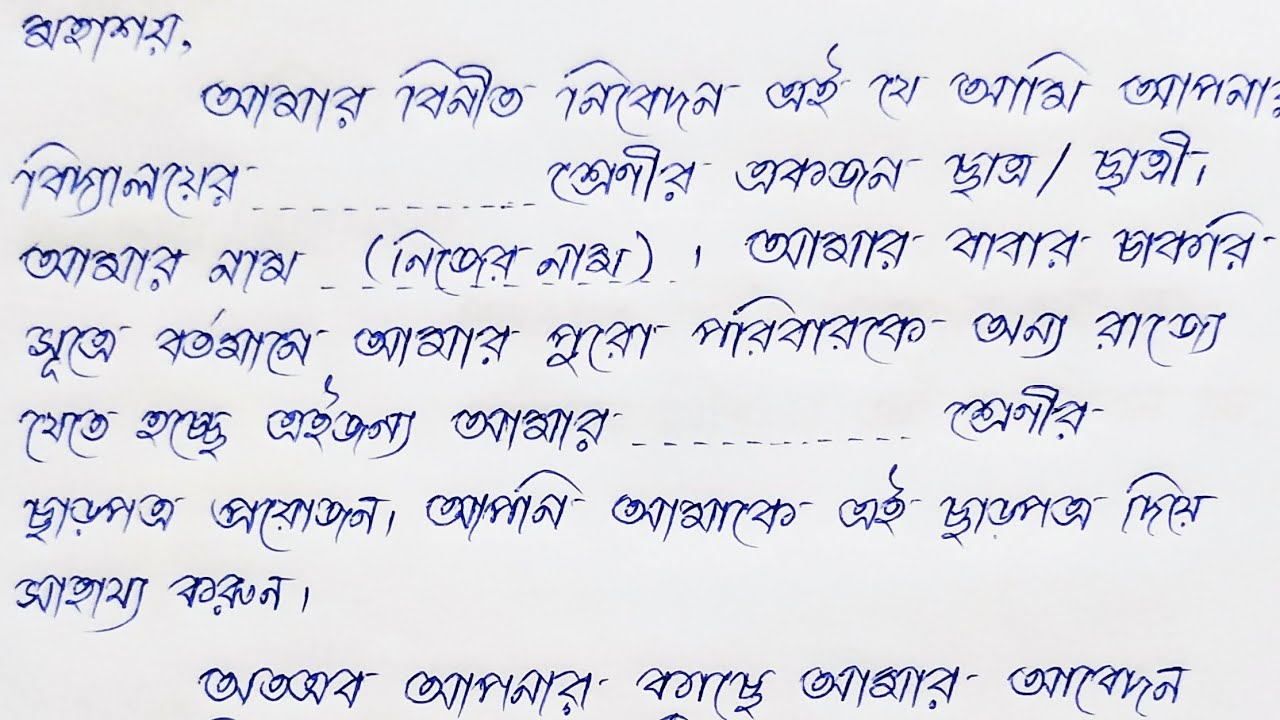 মহাশয়,
আমার বিনীত নিবেদন এই যে আমি আপনার
বিদ্যালয়ের ............... শ্রেণীর একজন ছাত্র / ছাত্রী।
আমার নাম (নিজের নাম) । আমার বাবার চাকরি
সূত্রে বর্তমানে আমার পুরো পরিবারকে অন্য রাজ্যে
যেতে হচ্ছে এইজন্য আমার ............... শ্রেণীর
ছাড়পত্র প্রয়োজন। আপনি আমাকে এই ছাড়পত্র দিয়ে
সাহায্য করুন।
অতএব আপনার কাছে আমার আবেদন